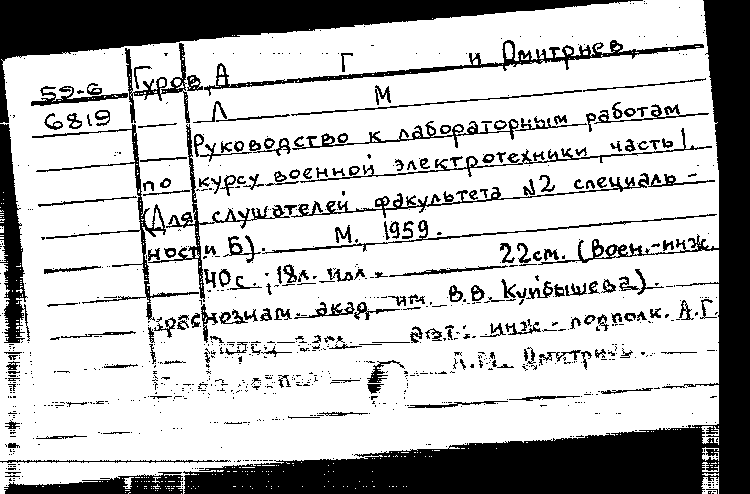 59-6 Гуров, А Г и Дмитриев,
6819 Л М
Руководство к лабораторным работам
по курсу военной электротехники, часть 1.
(Для слушателей факультета №2 специаль-
ности Б). М., 1959.
40с.; 18л. илл. 22см. (Воен.-инж.
краснознам. акад. им. В.В. Куйбышева).
Перед загл. авт.: инж.-подполк. А.Г.
подполк. Л.М. Дмитриев.